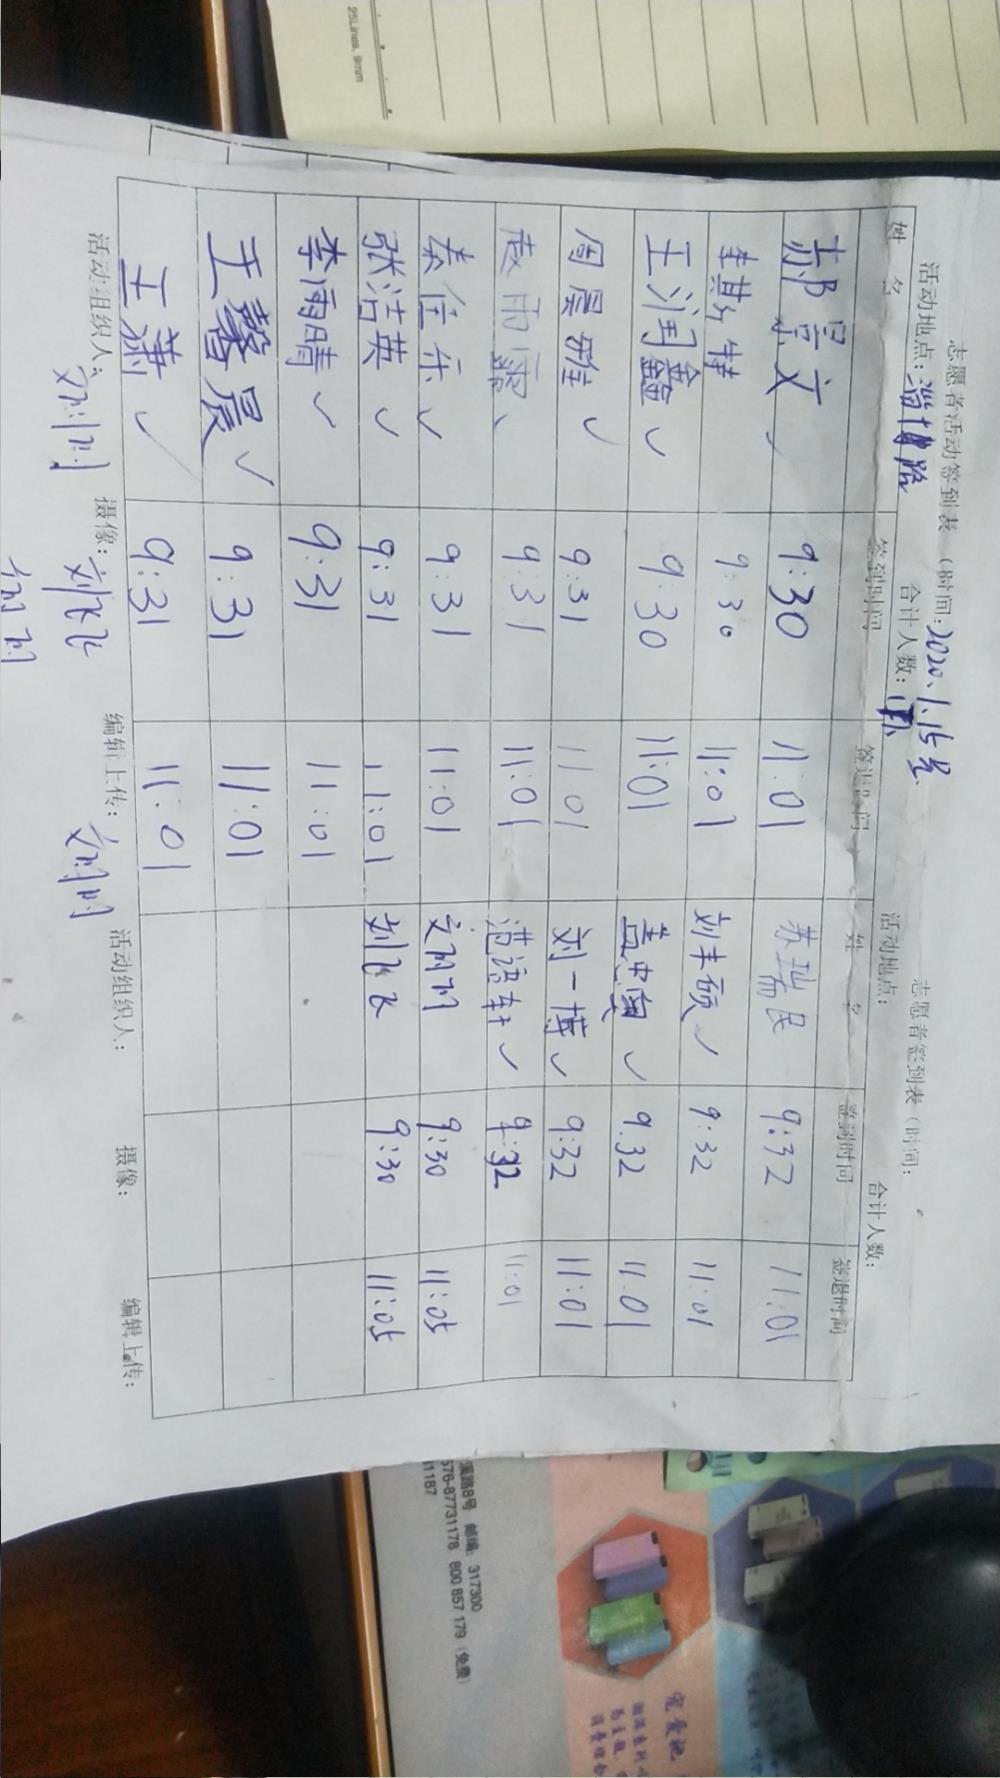 25Lines, 9mm
志愿者活动签到表(时间:2020.1.15号
志愿者签到表(时间:
活动地点:淄博路 合计人数:
活动地点: 合计人数:
姓 名 签到时间 签退时间 姓 名 签到时间 签退时间
郝景文 9:30 11:01 苏瑞民 9:32 11:01
李其特 9:30 11:01 刘丰硕 ✓ 9:32 11:01
王润鑫 ✓ 9:30 11:01 盖忠 ✓ 9.32 11.01
周晨雅 ✓ 9:31 11 01 刘一博 ✓ 9:32 11:01
赵雨霏 9:31 11:01 范语轩 ✓ 9:32 11:01
秦佳乐 ✓ 9:31 11:01 9:30 11:05
张洁英 ✓ 9:31 11:01 刘飞飞 9:30 11:05
李雨晴 ✓ 9:31 11:01
王馨晨 ✓ 9:31 11:01
王萧 ✓ 9:31 11:01
活动组织人: 摄像: 编辑上传: 活动组织人: 摄像: 编辑上传:
刘飞飞
溪路8号 邮编:317300
576-87731178 800 857 179(免费)
1187